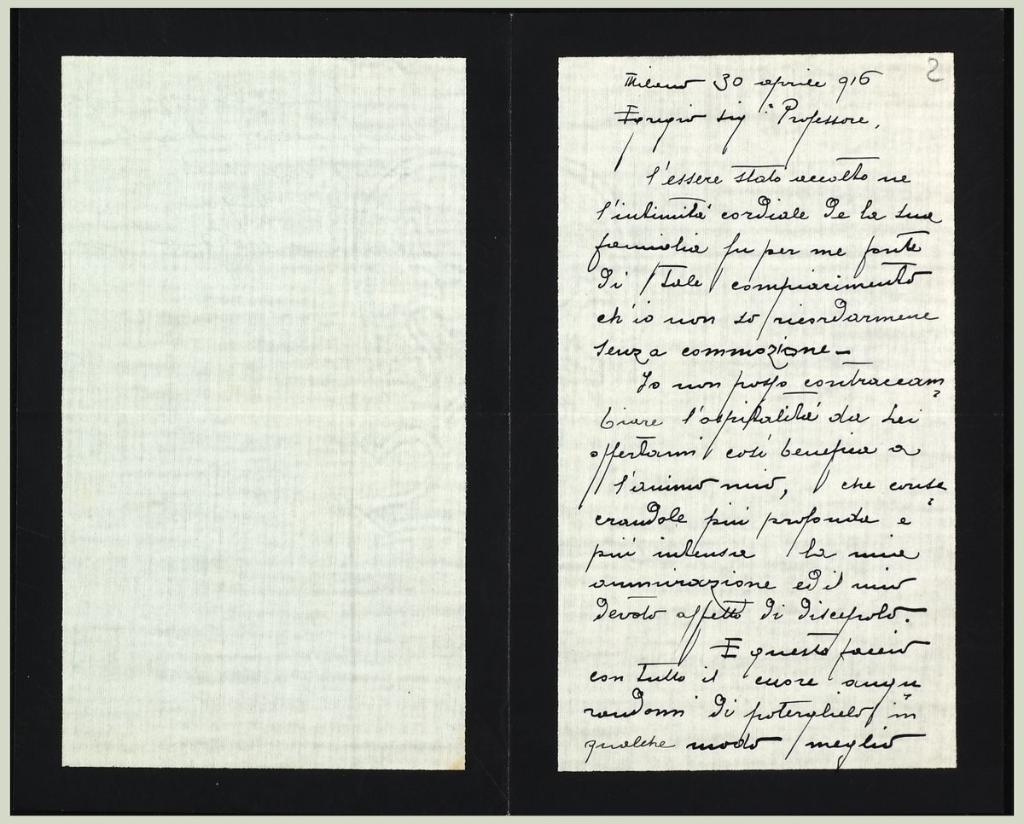 2
Milano 30 aprile 916
Egregio sig.r Professore,
l'essere stato accolto ne
l'intimità cordiale de la sua
famiglia fu per me fonte
di tale compiacimento
ch'io non so ricordarmene
senza commozione—
Io non posso contraccam
biare l'ospitalità da Lei
offertami così benefica a
l'animo mio, che conse
crandole più profonda e
più intensa la mia
ammirazione ed il mio
devoto affetto di discepolo.
E questo faccio
con tutto il cuore augu
randomi di poterglielo in
qualche modo meglio